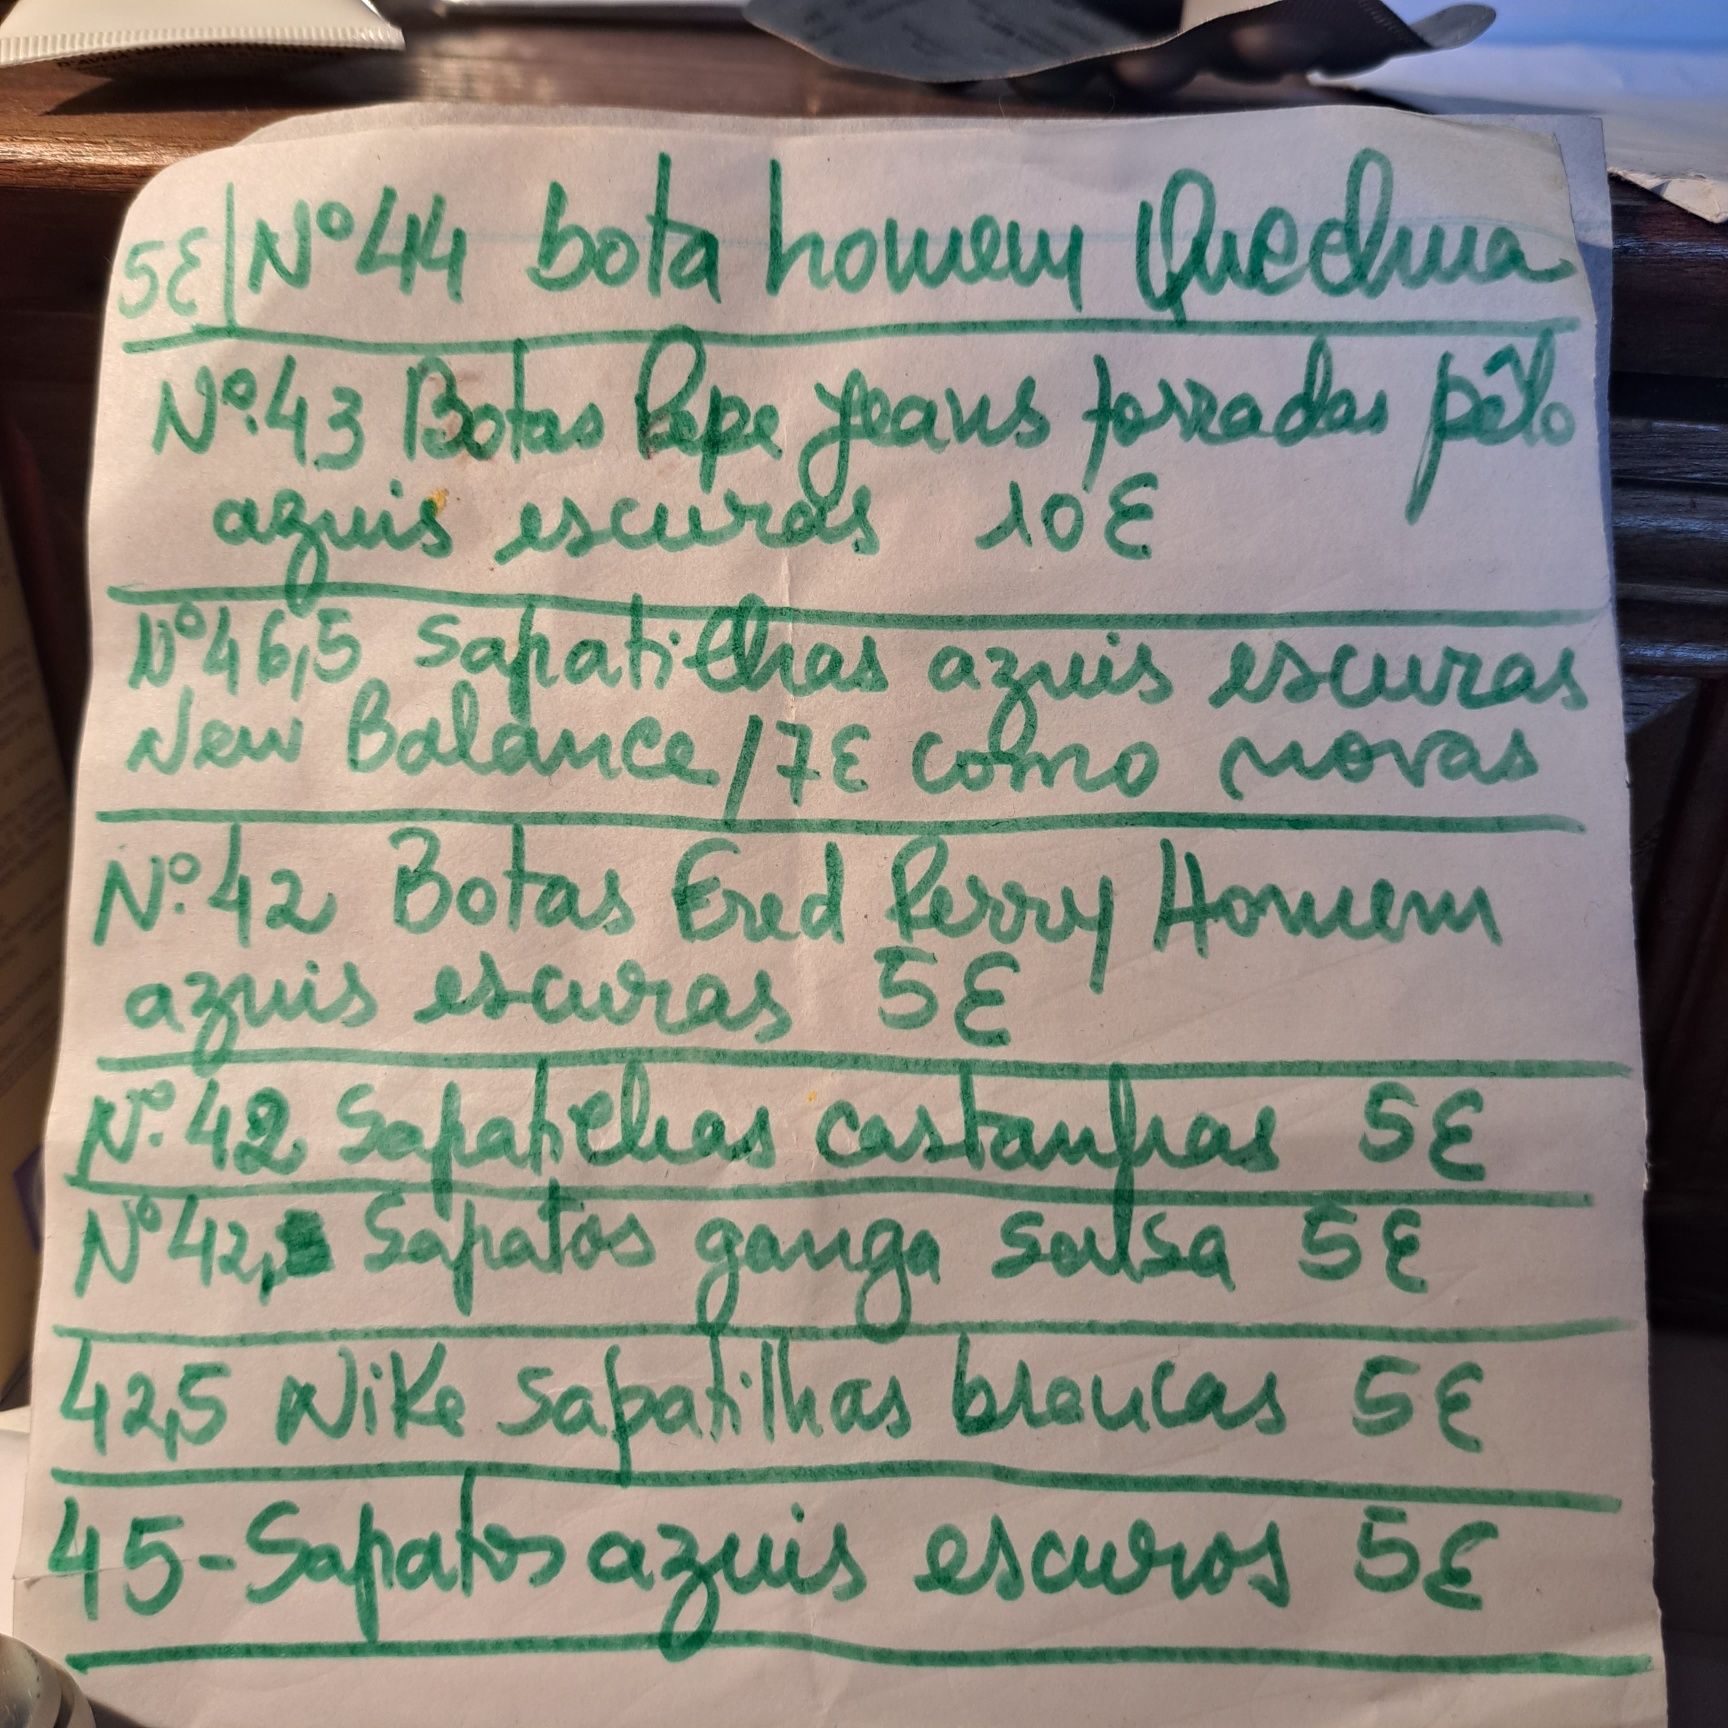 5€ | Nº 44 bota homem Quechua
Nº. 43 Botas Pepe Jeans forradas pêlo
azuis escuras 10€
Nº 46,5 Sapatilhas azuis escuras
New Balance / 7€ como novas
Nº. 42 Botas Fred Perry Homem
azuis escuras 5€
Nº. 42 Sapatilhas castanhas 5€
Nº 42, Sapatos ganga salsa 5€
42,5 Nike Sapatilhas brancas 5€
45 - Sapatos azuis escuros 5€